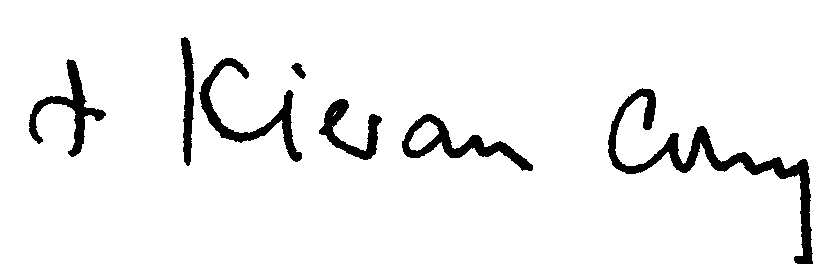 + Kieran Conry